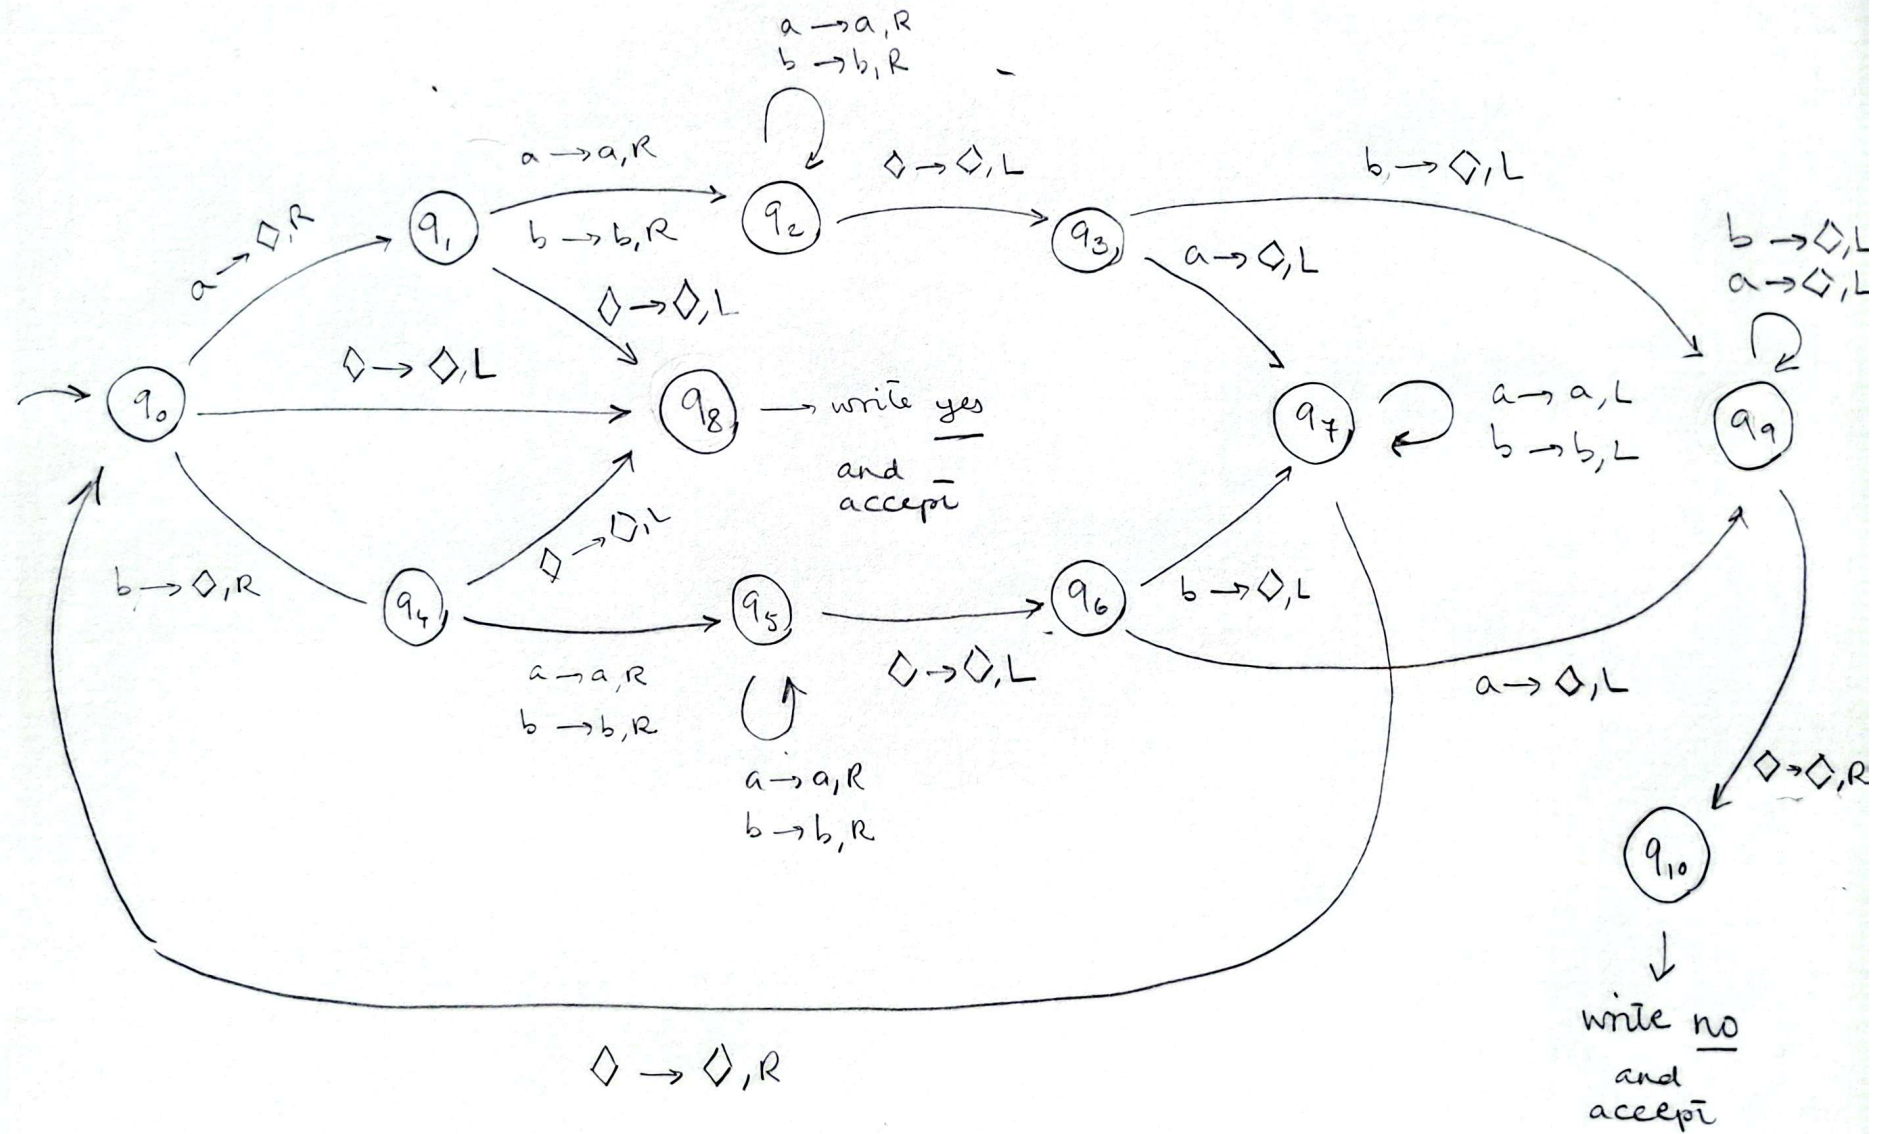 a → a, R
b → b, R
a → a, R
b → b, R
◇ → ◇, L
b → ◇, L
a → ◇, R
q1
q2
q3
a → ◇, L
b → ◇, L
a → ◇, L
◇ → ◇, L
◇ → ◇, L
q0
q8
→ write yes
and
accept
q7
a → a, L
b → b, L
q9
◇ → ◇, L
b → ◇, R
q4
q5
q6
b → ◇, L
a → a, R
b → b, R
◇ → ◇, L
a → ◇, L
a → a, R
b → b, R
◇ → ◇, R
q10
write no
and
accept
◇ → ◇, R